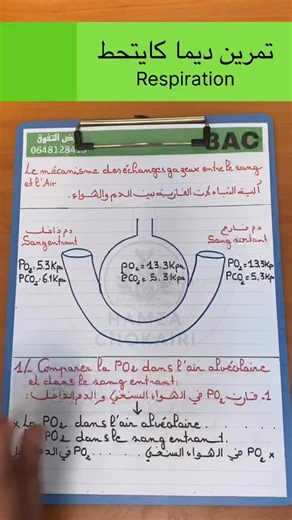 تمرين ديما كايتحط
Respiration
BAC
Le mécanisme des échanges gazeux entre le sang
et l'Air
آلية التبادلات الغازية بين الدم والهواء.
دم داخل
Sang entrant
دم خارج
Sang sortant
PO₂=5.3Kpa
PCO₂=6.1Kpa
PO₂=13.3Kpa
PCO₂=5.3Kpa
PO₂=13.3Kpa
PCO₂=5,3Kpa
HAMZA
CHOKAIRI
1/ Comparer la PO₂ dans l'air alvéolaire
et dans le sang entrant:
1. قارن PO₂ في الهواء السنخي والدم الداخل:
* La PO₂ dans l'air alvéolaire........
PO₂ dans le sang entrant.
× PO₂ في الهواء السنخي ...... PO₂ في الدم